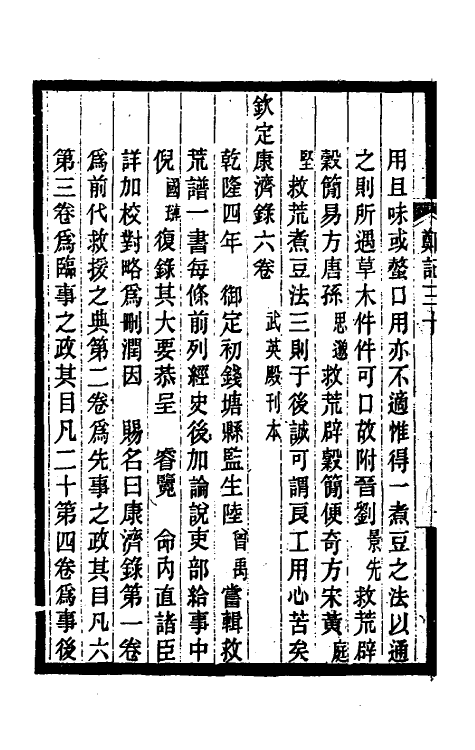 鄭記三十
用且味或螫口用亦不適惟得一煮豆之法以通
之則所遇草木件件可口故附晉劉景先救荒辟
穀簡易方唐孫思邈救荒辟穀簡便奇方宋黃庭
堅救荒煮豆法三則于後誠可謂良工用心苦矣
欽定康濟錄六卷 武英殿刊本
乾隆四年 御定初錢塘縣監生陸曾禹嘗輯救
荒譜一書每條前列經史後加論說吏部給事中
倪國璉復錄其大要恭呈 睿覽 命內直諸臣
詳加校對略爲刪潤因 賜名曰康濟錄第一卷
爲前代救援之典第二卷爲先事之政其目凡六
第三卷爲臨事之政其目凡二十第四卷爲事後